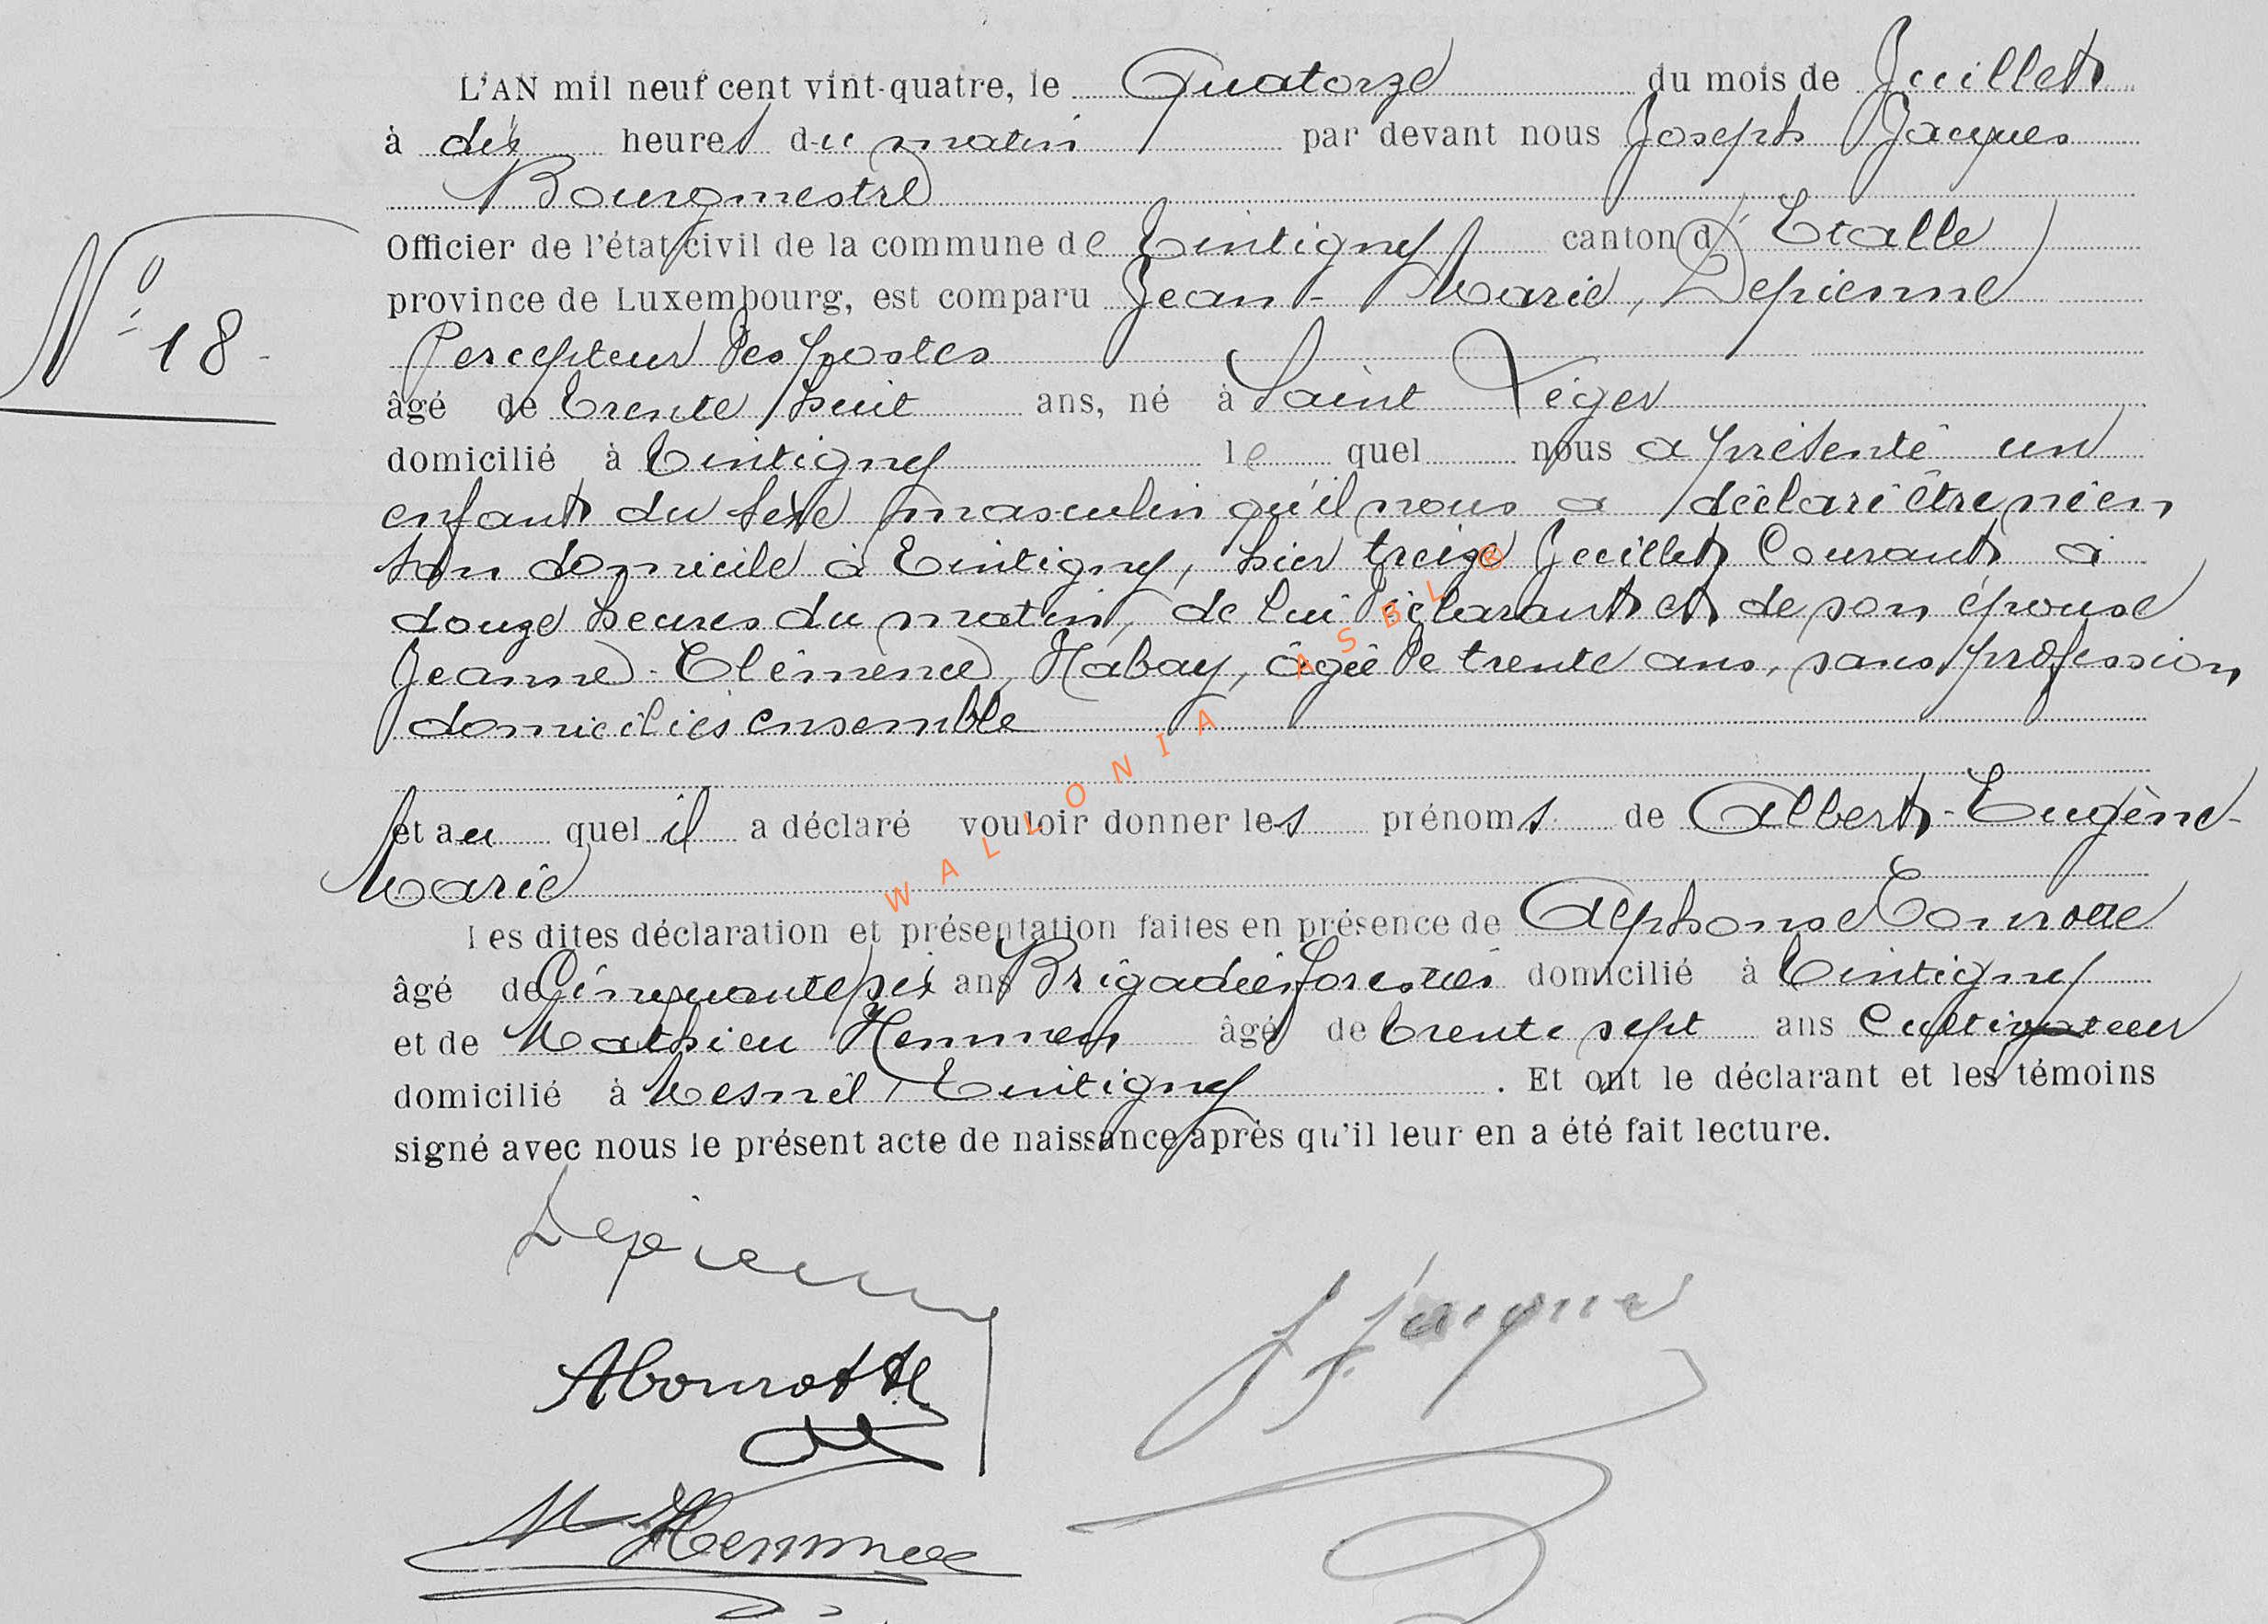 L'AN mil neuf cent vint-quatre, le Quatorze du mois de Juillet
à dix heures du matin par devant nous Joseph Jacques
Bourgmestre
Officier de l'état civil de la commune de Tintigny canton d'Etalle
province de Luxembourg, est comparu Jean-Marie, Depienne
Percepteur des postes
âgé de trente huit ans, né à Saint Léger
domicilié à Tintigny le quel nous a présenté un
enfant du sexe masculin qu'il nous a déclaré être né en
son domicile à Tintigny, hier treize Juillet Courant à
douze heures du matin, de lui déclarant et de son épouse
Jeanne-Clémence, Habay, âgée de trente ans, sans profession
domiciliés ensemble
et au quel il a déclaré vouloir donner les prénoms de Albert-Eugène-
Marie
Les dites déclaration et présentation faites en présence de Alphonse
âgé de Cinquante six ans Brigadier forestier domicilié à Tintigny
et de Mathieu Hemmen âgé de trente sept ans Cultivateur
domicilié à Mesnil, Tintigny. Et ont le déclarant et les témoins
signé avec nous le présent acte de naissance après qu'il leur en a été fait lecture.
N° 18-
Depienne
J Jacques
M Hemmen
WALLONIA ASBL ®